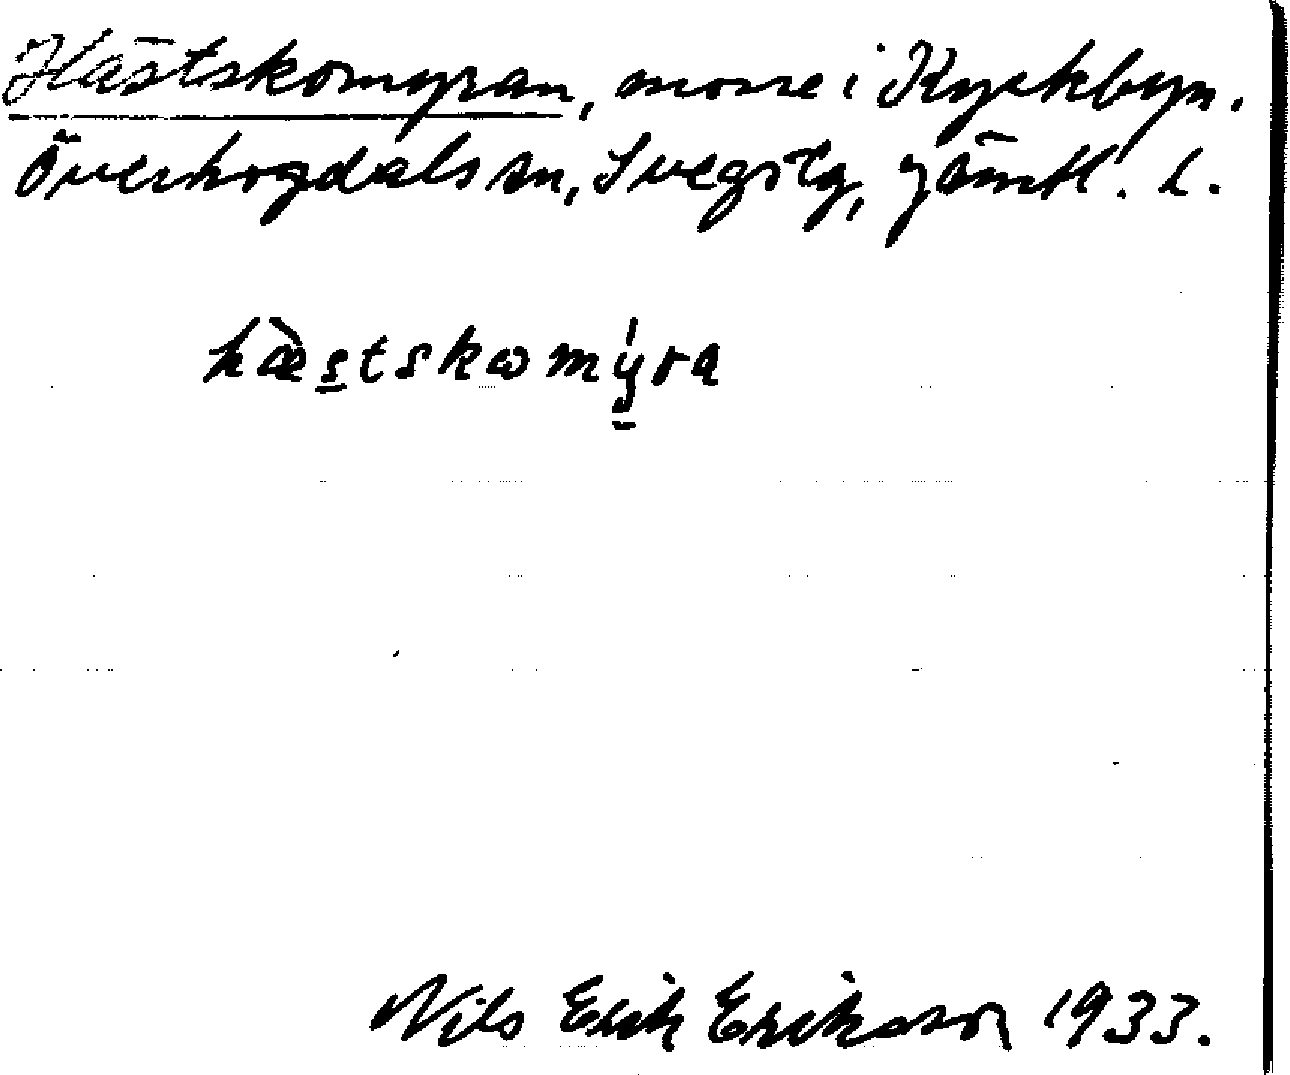 Hästskomyran, mosse i Kyrkbyn.
Överhogdals sn, Svegs tg, Jämtl. L.
hæ̀stskωmý̱ra
Nils Erik Eriksson 1933.